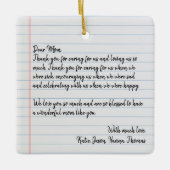 Dear Mom
Thank you for caring for us and loving us so
much. Thank you for caring for us when we
were sick, encouraging us when we were sad
and celebrating with us when we were happy.
We love you so much and are so blessed to have
a wonderful mom like you.
With much love
Katie, Jason, Norma, Thomas